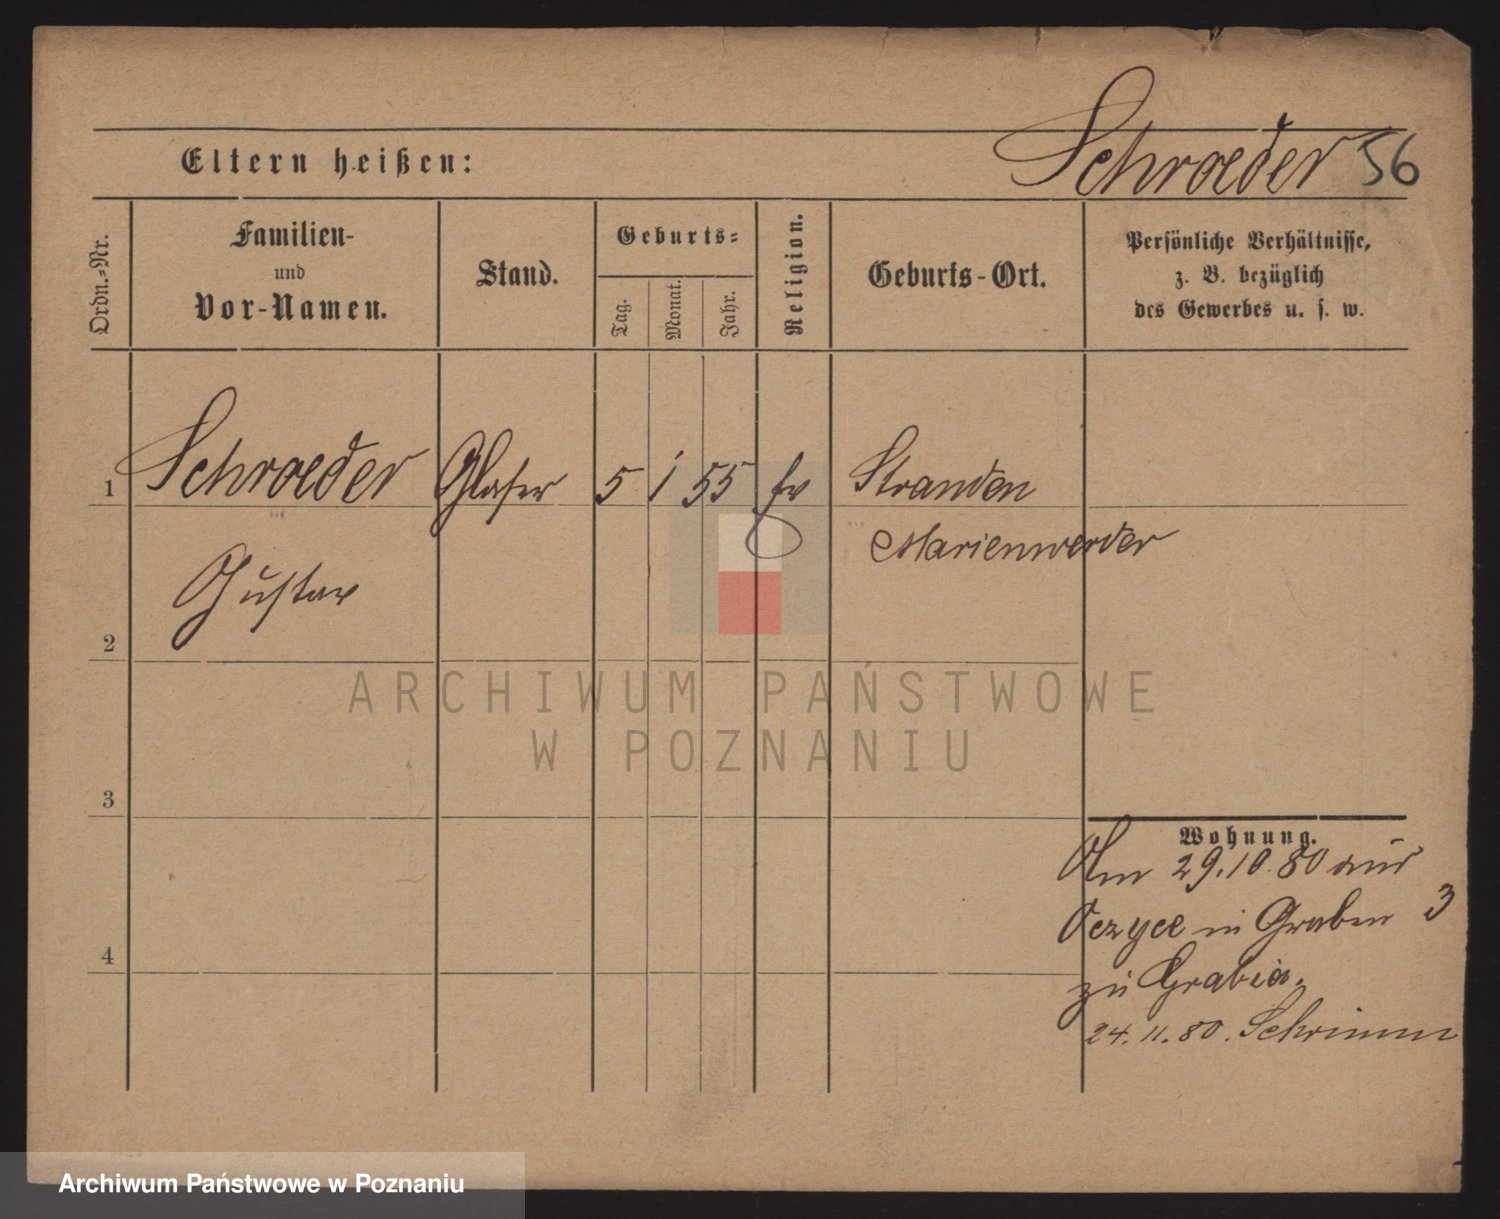 Schroeder 56
Eltern heißen:
Ordn.=Nr.
Familien-
und
Vor-Namen.
Stand.
Geburts=
Tag.
Monat.
Jahr.
Religion.
Geburts-Ort.
Persönliche Verhältnisse,
z. B. bezüglich
des Gewerbes u. s. w.
1 Schroeder Glaser 5 1 55 ev Stranden
Marienwerder
Gustav
2
ARCHIWUM PAŃSTWOWE
W POZNANIU
3
Wohnung.
Am 29.10.80 aus
in Graben 3
zu Grabia.
4
24.11.80. Schrimm
Archiwum Państwowe w Poznaniu